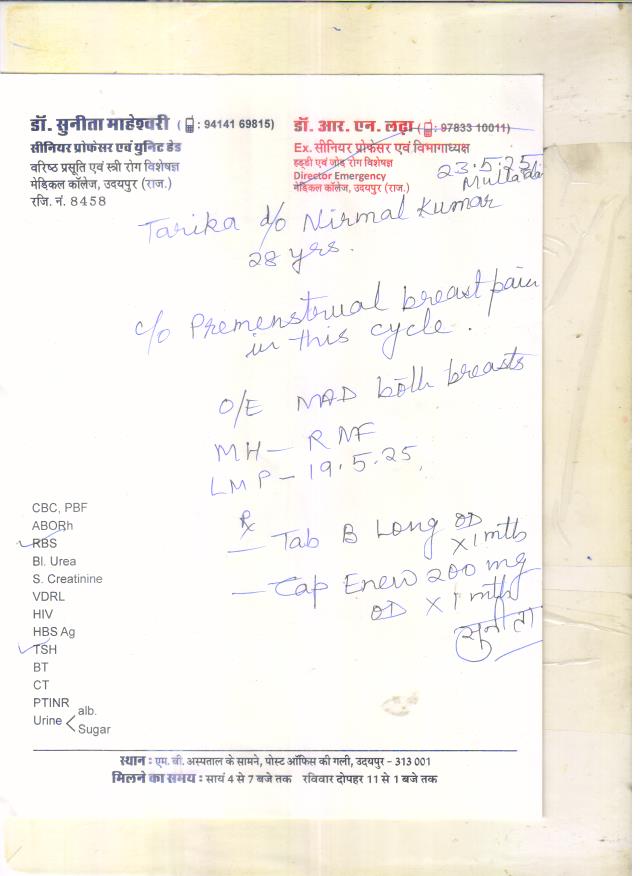 डॉ. सुनीता माहेश्वरी ( : 94141 69815)
सीनियर प्रोफेसर एवं युनिट हेड
वरिष्ठ प्रसूति एवं स्त्री रोग विशेषज्ञ
मेडिकल कॉलेज, उदयपुर (राज.)
रजि. नं. 8458
डॉ. आर. एन. लढ़ा ( : 97833 10011)
Ex. सीनियर प्रोफेसर एवं विभागाध्यक्ष
हड्डी एवं जोड़ रोग विशेषज्ञ
Director Emergency
मेडिकल कॉलेज, उदयपुर (राज.)
23.5.25
Tarika d/o Nirmal Kumar
28 yrs.
c/o Premenstrual breast pain
in this cycle.
O/E NAD both breasts
MH - RNF
LMP - 19.5.25
Rx
- Tab B Long OD
X 1 mth
- Cap Enew 200 mg
OD X 1 mth
सुनीता
CBC, PBF
ABORh
RBS
Bl. Urea
S. Creatinine
VDRL
HIV
HBS Ag
TSH
BT
CT
PTINR
Urine < alb.
Sugar
स्थान : एम. बी. अस्पताल के सामने, पोस्ट ऑफिस की गली, उदयपुर - 313 001
मिलने का समय : सायं 4 से 7 बजे तक रविवार दोपहर 11 से 1 बजे तक